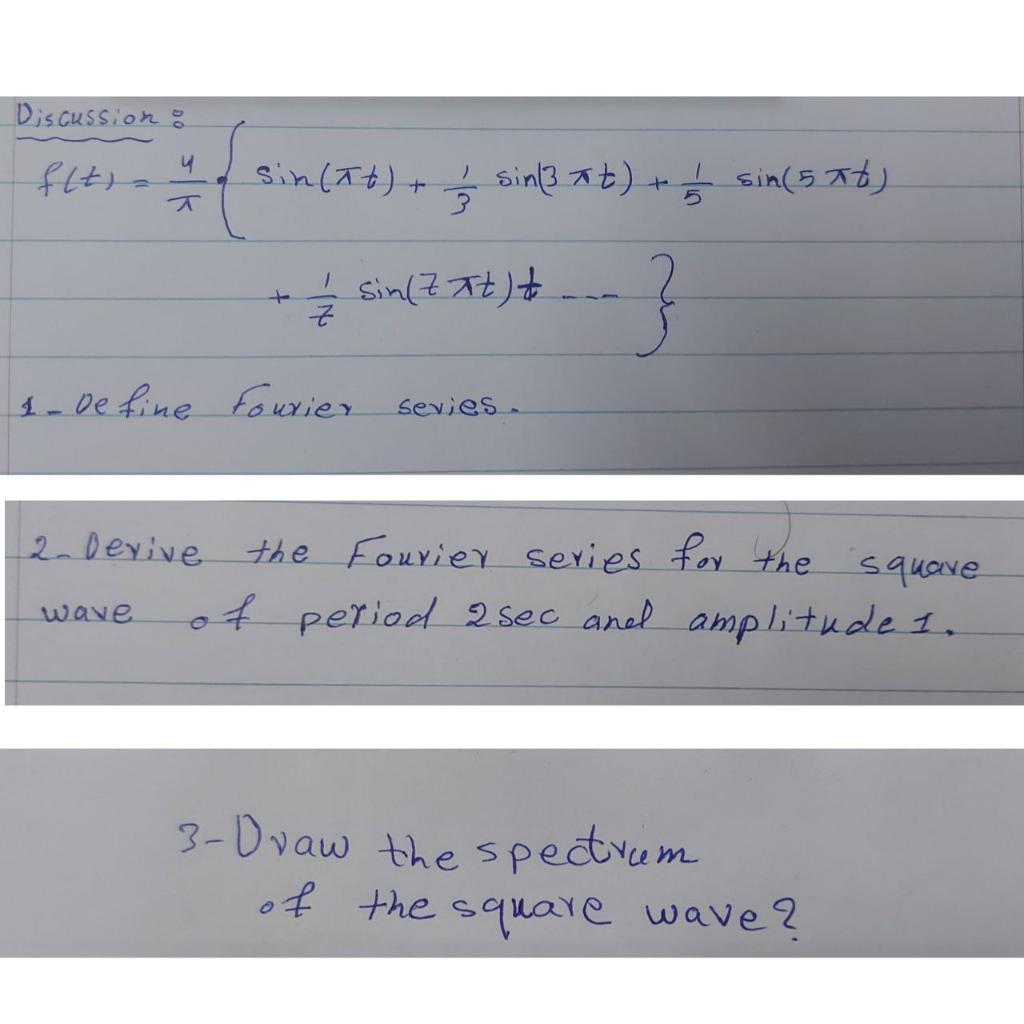 Discussion :
f(t) = 4/π { sin(πt) + 1/3 sin(3πt) + 1/5 sin(5πt)
+ 1/7 sin(7πt) + --- }
1- Define Fourier series.
2- Derive the Fourier series for the square
wave of period 2sec and amplitude 1.
3- Draw the spectrum
of the square wave?